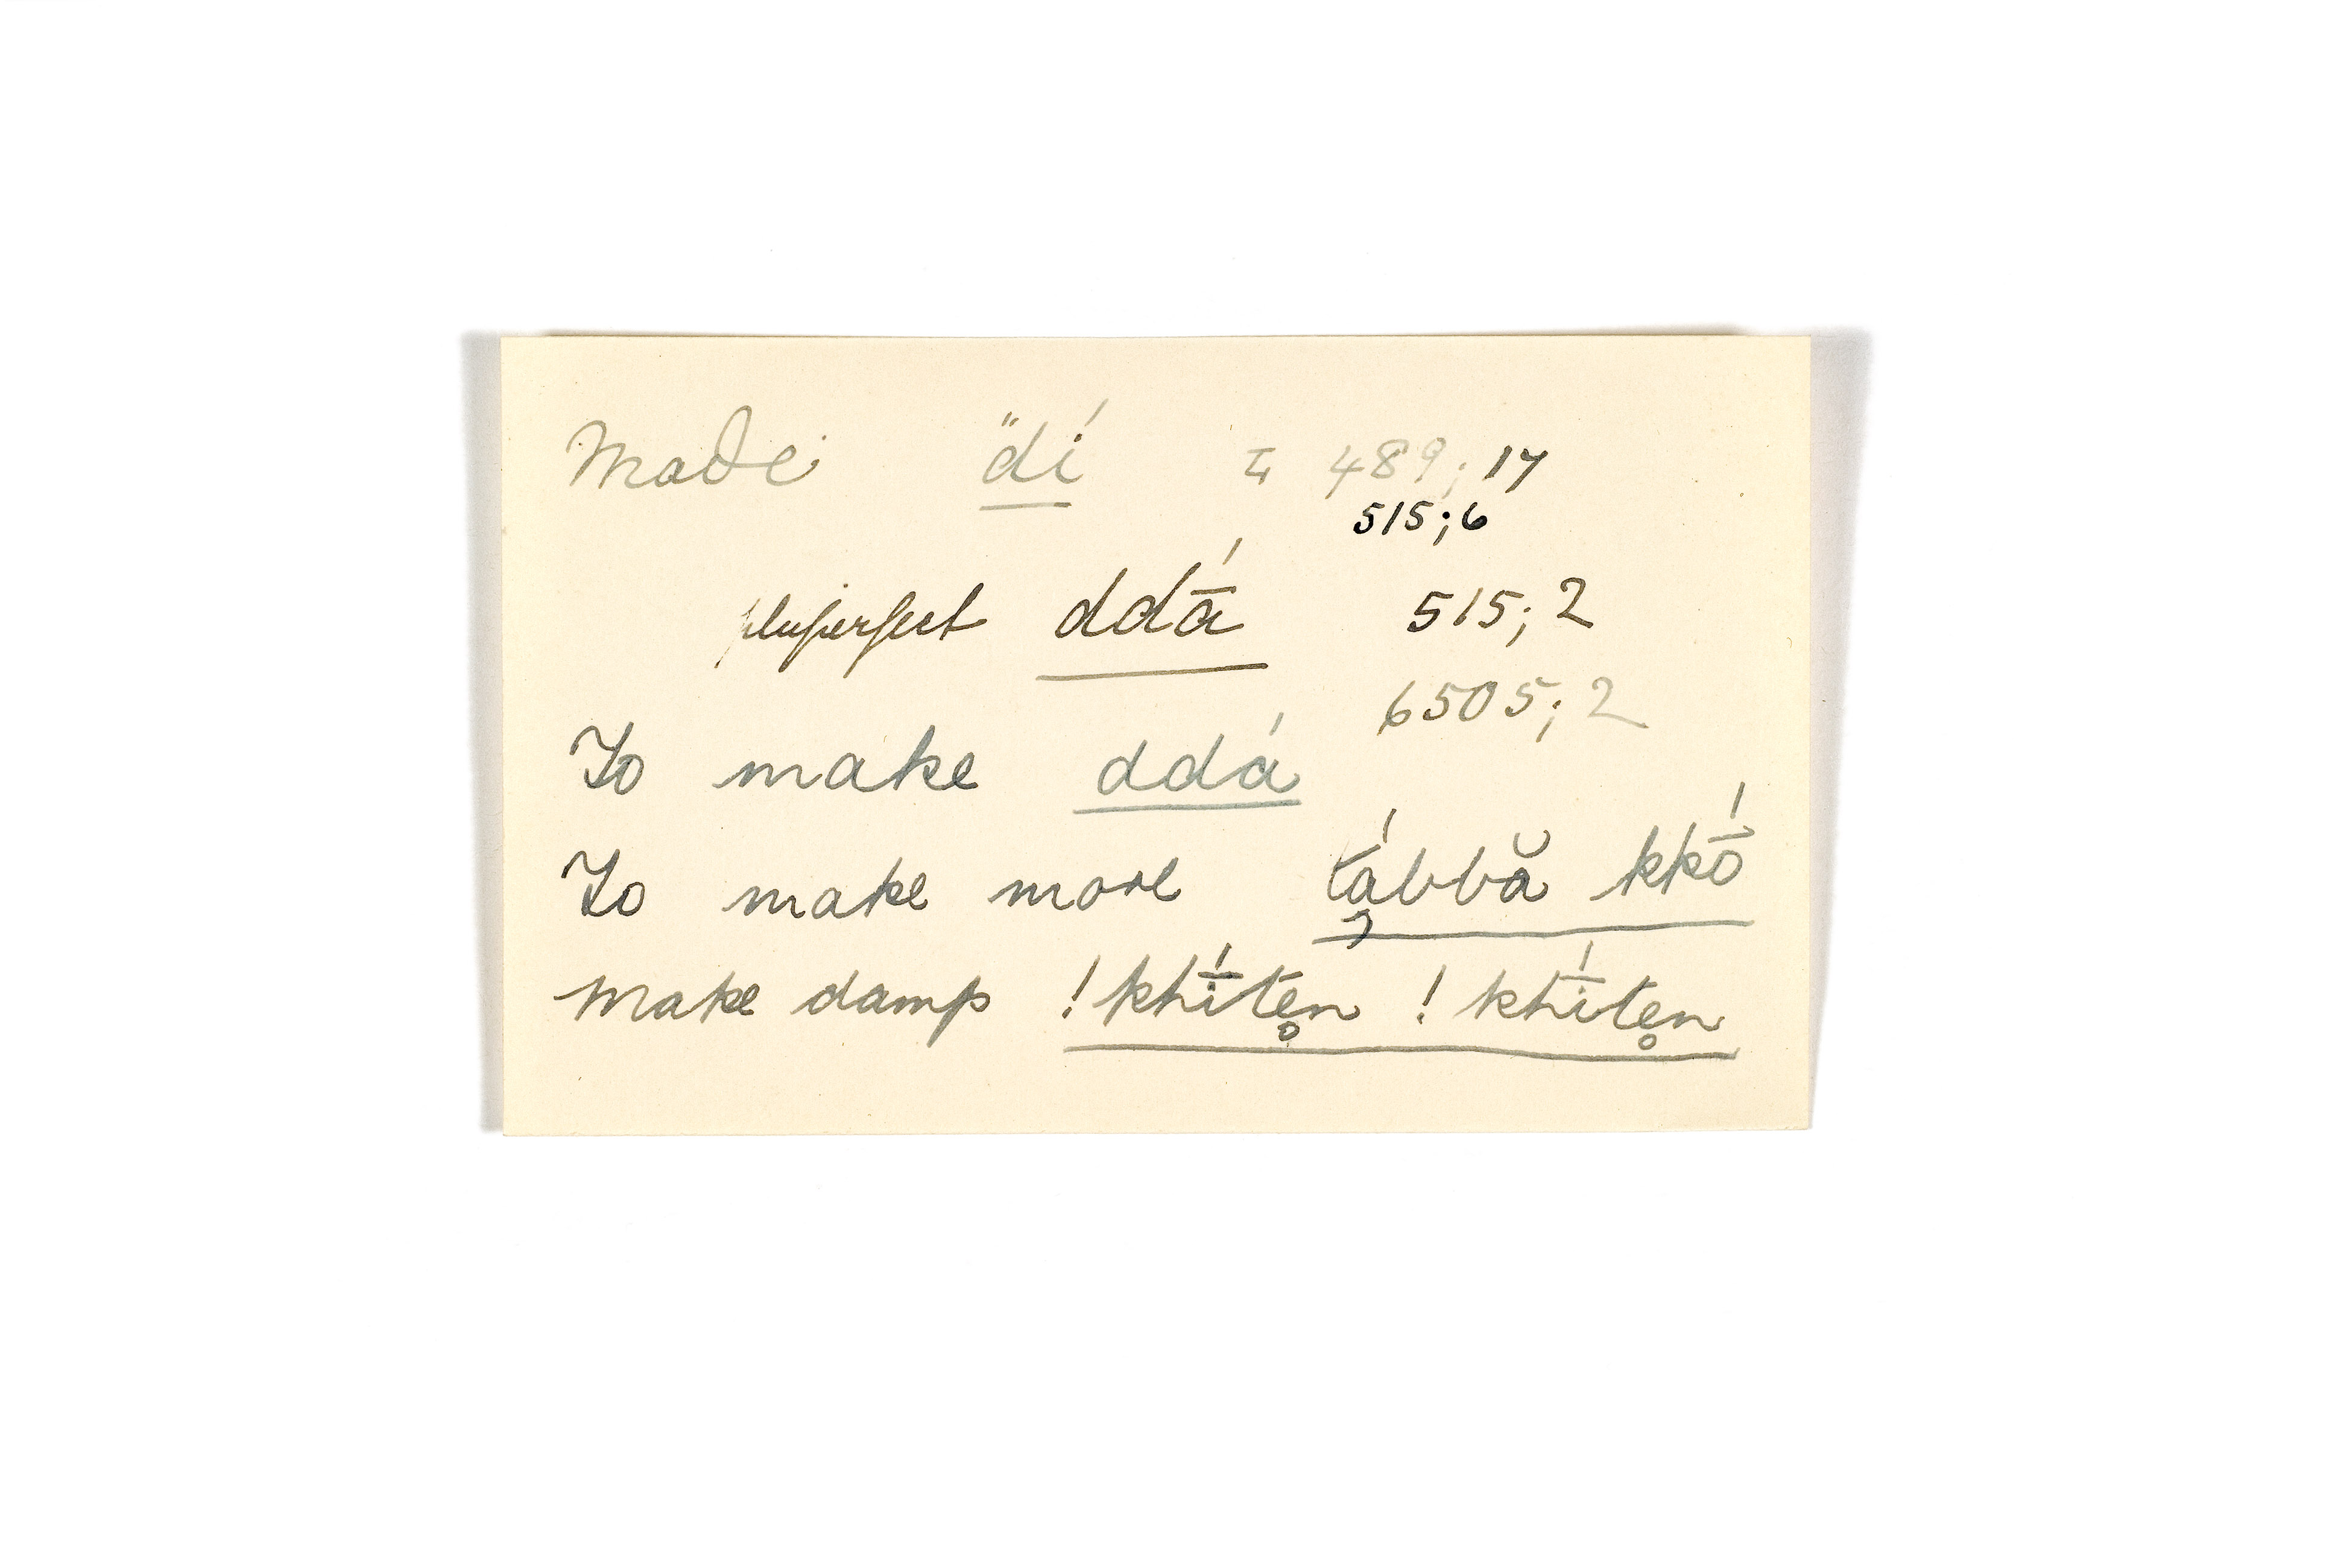 Made "dí = 489; 17
515; 6
pluperfect ddā́ 515; 2
6505; 2
To make ddá
To make more țábbă kkṓ
make damp !khī́te̥n !khī́te̥n